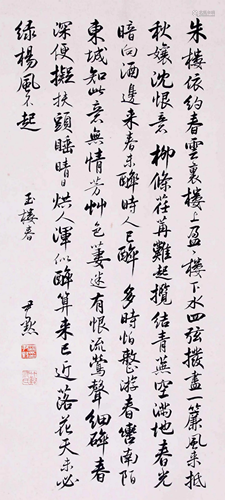 朱樓依約春雲裏樓上盈盈樓下水四弦撥盡一簾風未抵
秋孃沈恨意 柳條荏苒難起攬結青蕪空滿地春光
暗向酒邊來春未醉時人已醉 多時怕整游春轡南陌
東城知此意無情芳艸色萋迷有恨流鶯聲細碎 春
深便擬扶頭睡晴日烘人渾似醉算來已近落花天未必
綠楊風不起
玉樓春 尹默